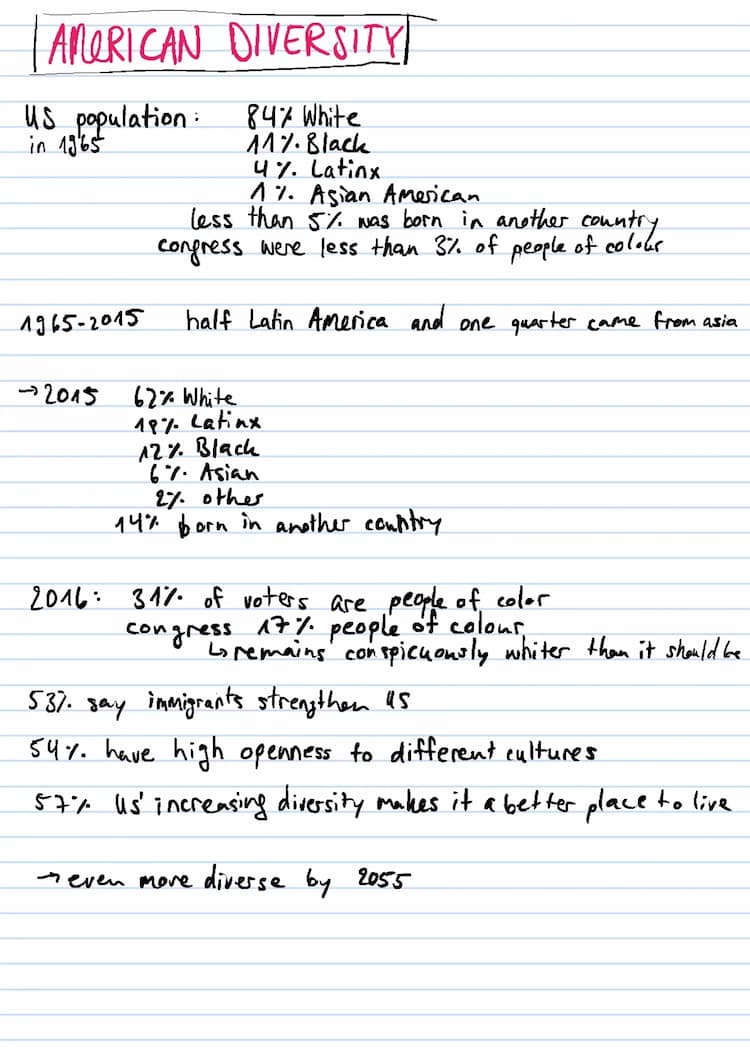 AMERICAN DIVERSITY
US population: 84% White
in 1965 11% Black
4% Latinx
1% Asian American
less than 5% was born in another country
congress were less than 3% of people of colour
1965-2015 half Latin America and one quarter came from asia
→2015 62% White
18% Latinx
12% Black
6% Asian
2% other
14% born in another country
2016: 31% of voters are people of color
congress 17% people of colour
↳remains conspicuously whiter than it should be
53% say immigrants strengthen US
54% have high openness to different cultures
57% US' increasing diversity makes it a better place to live
→even more diverse by 2055